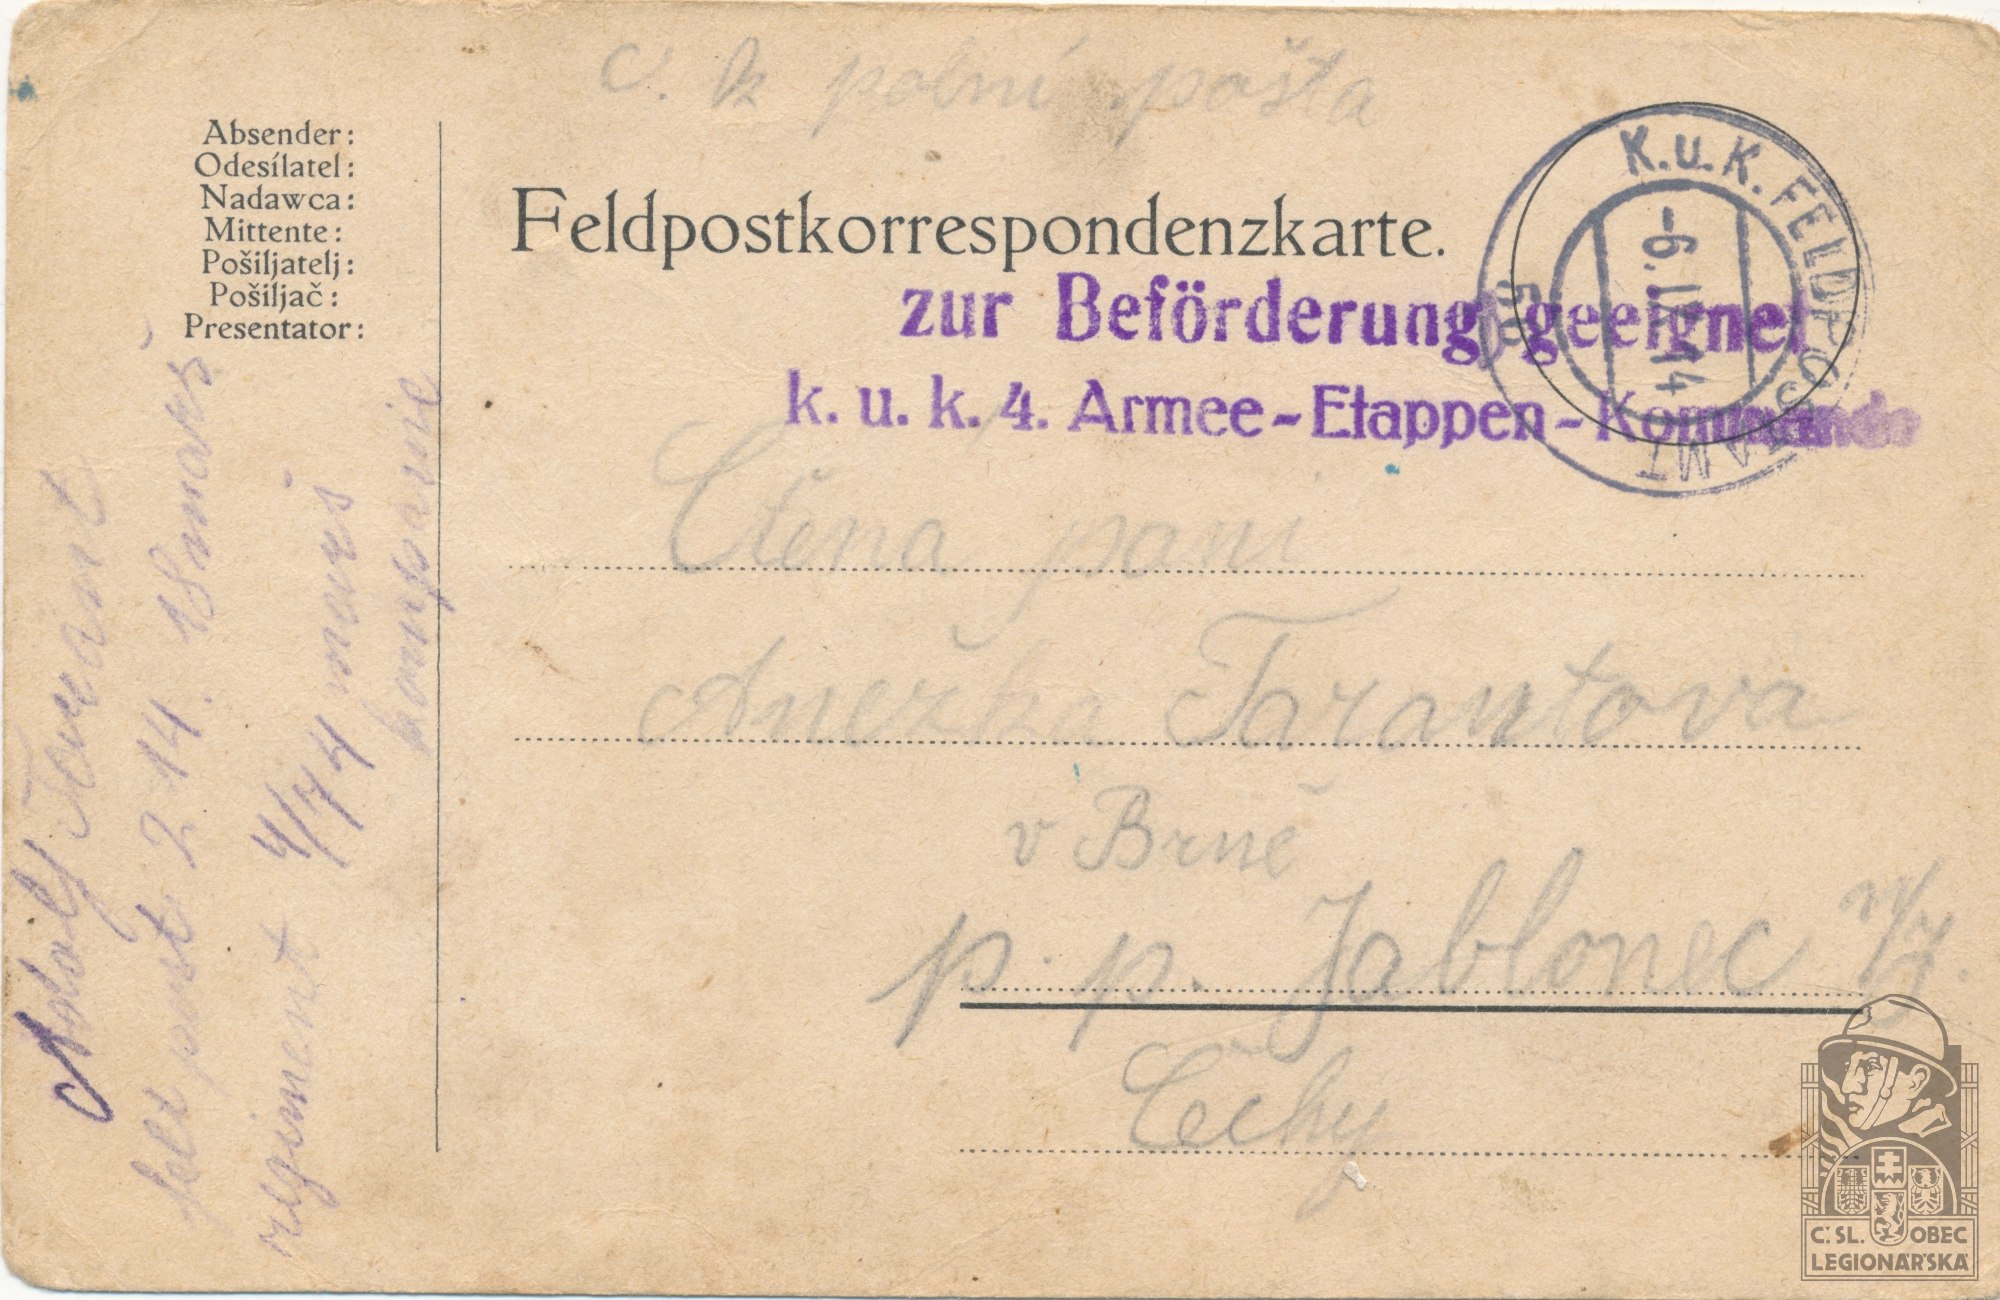 c. k polní pošta
Absender:
Odesílatel:
Nadawca:
Mittente:
Pošiljatelj:
Pošiljač:
Presentator:
Feldpostkorrespondenzkarte.
K. u. K. FELDPOSTAMT
-6. IX. 14
zur Beförderung geeignet
k. u. k. 4. Armee-Etappen-Kommando
Ctěna pani
Anežka Tarantova
v Brně
p. p. Jablonec n/J.
Čechy
Adolf
Feld post 214. 18 marš
regiment 4/74 marš
kompanie
Č. SL. OBEC
LEGIONÁŘSKÁ